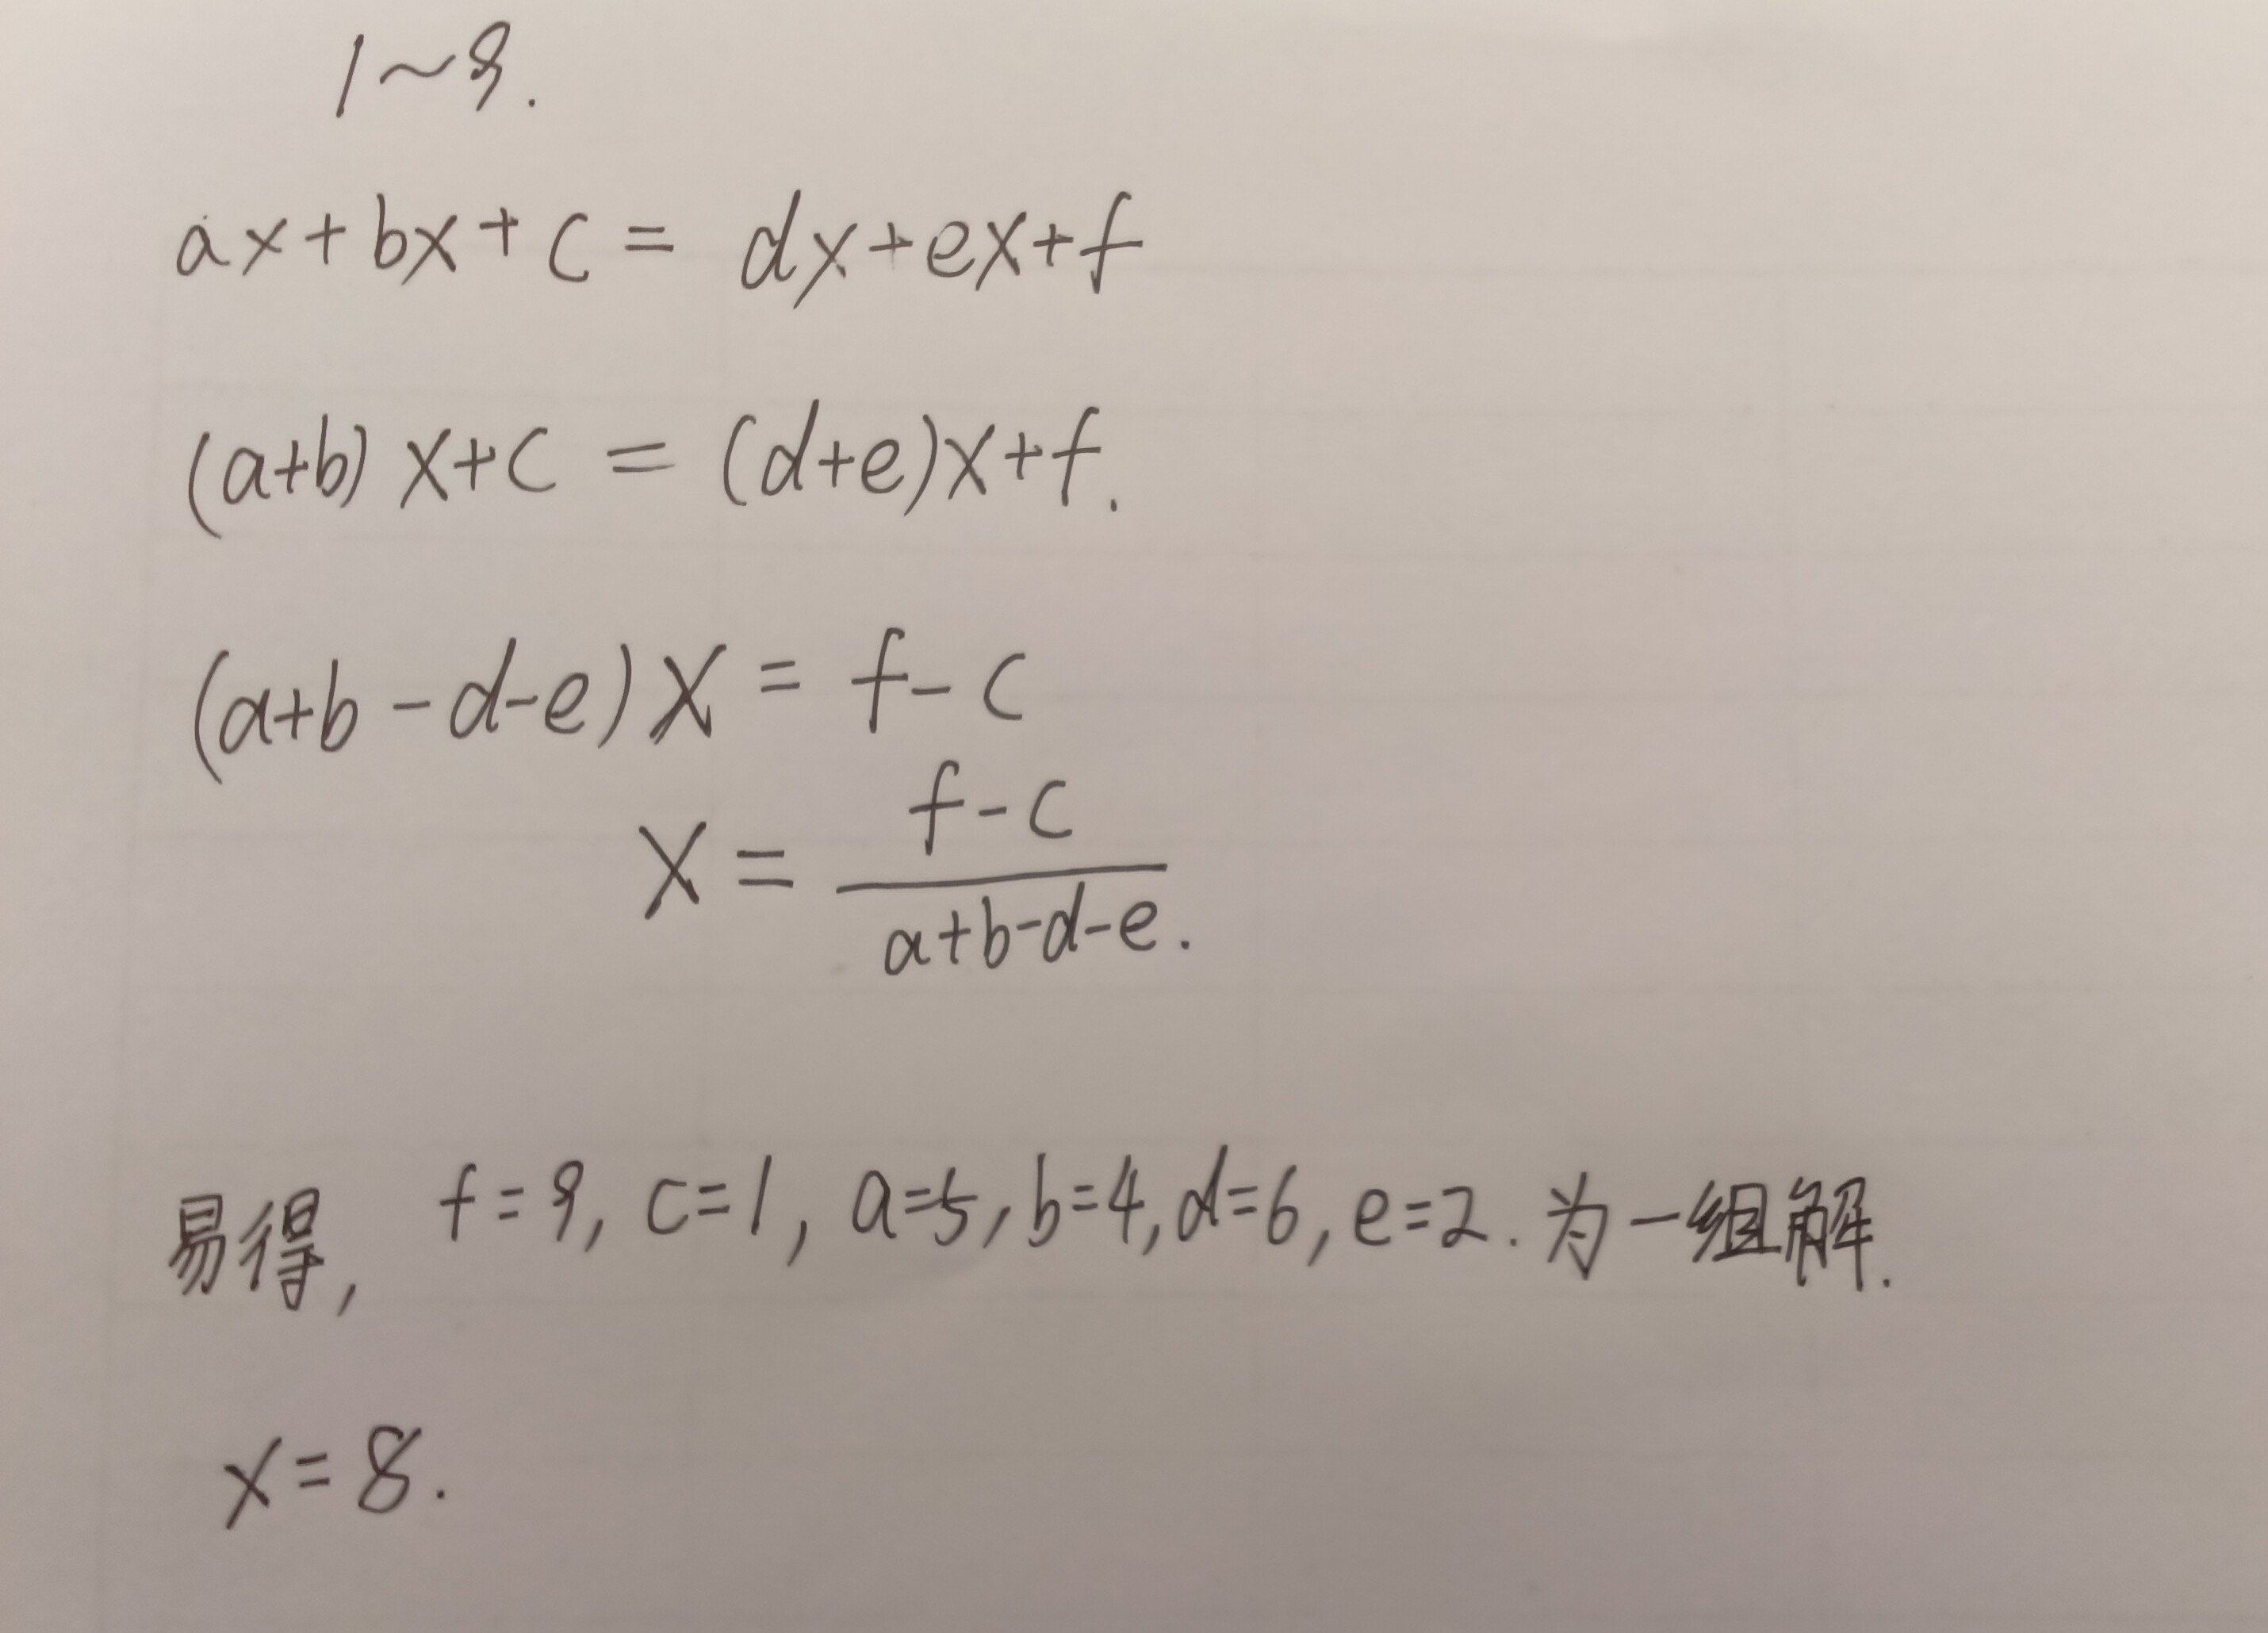 1~9.
ax+bx+c = dx+ex+f
(a+b)x+c = (d+e)x+f.
(a+b-d-e)x = f-c
x = \frac{f-c}{a+b-d-e}.
易得, f=9, c=1, a=5, b=4, d=6, e=2. 为一组解.
x=8.